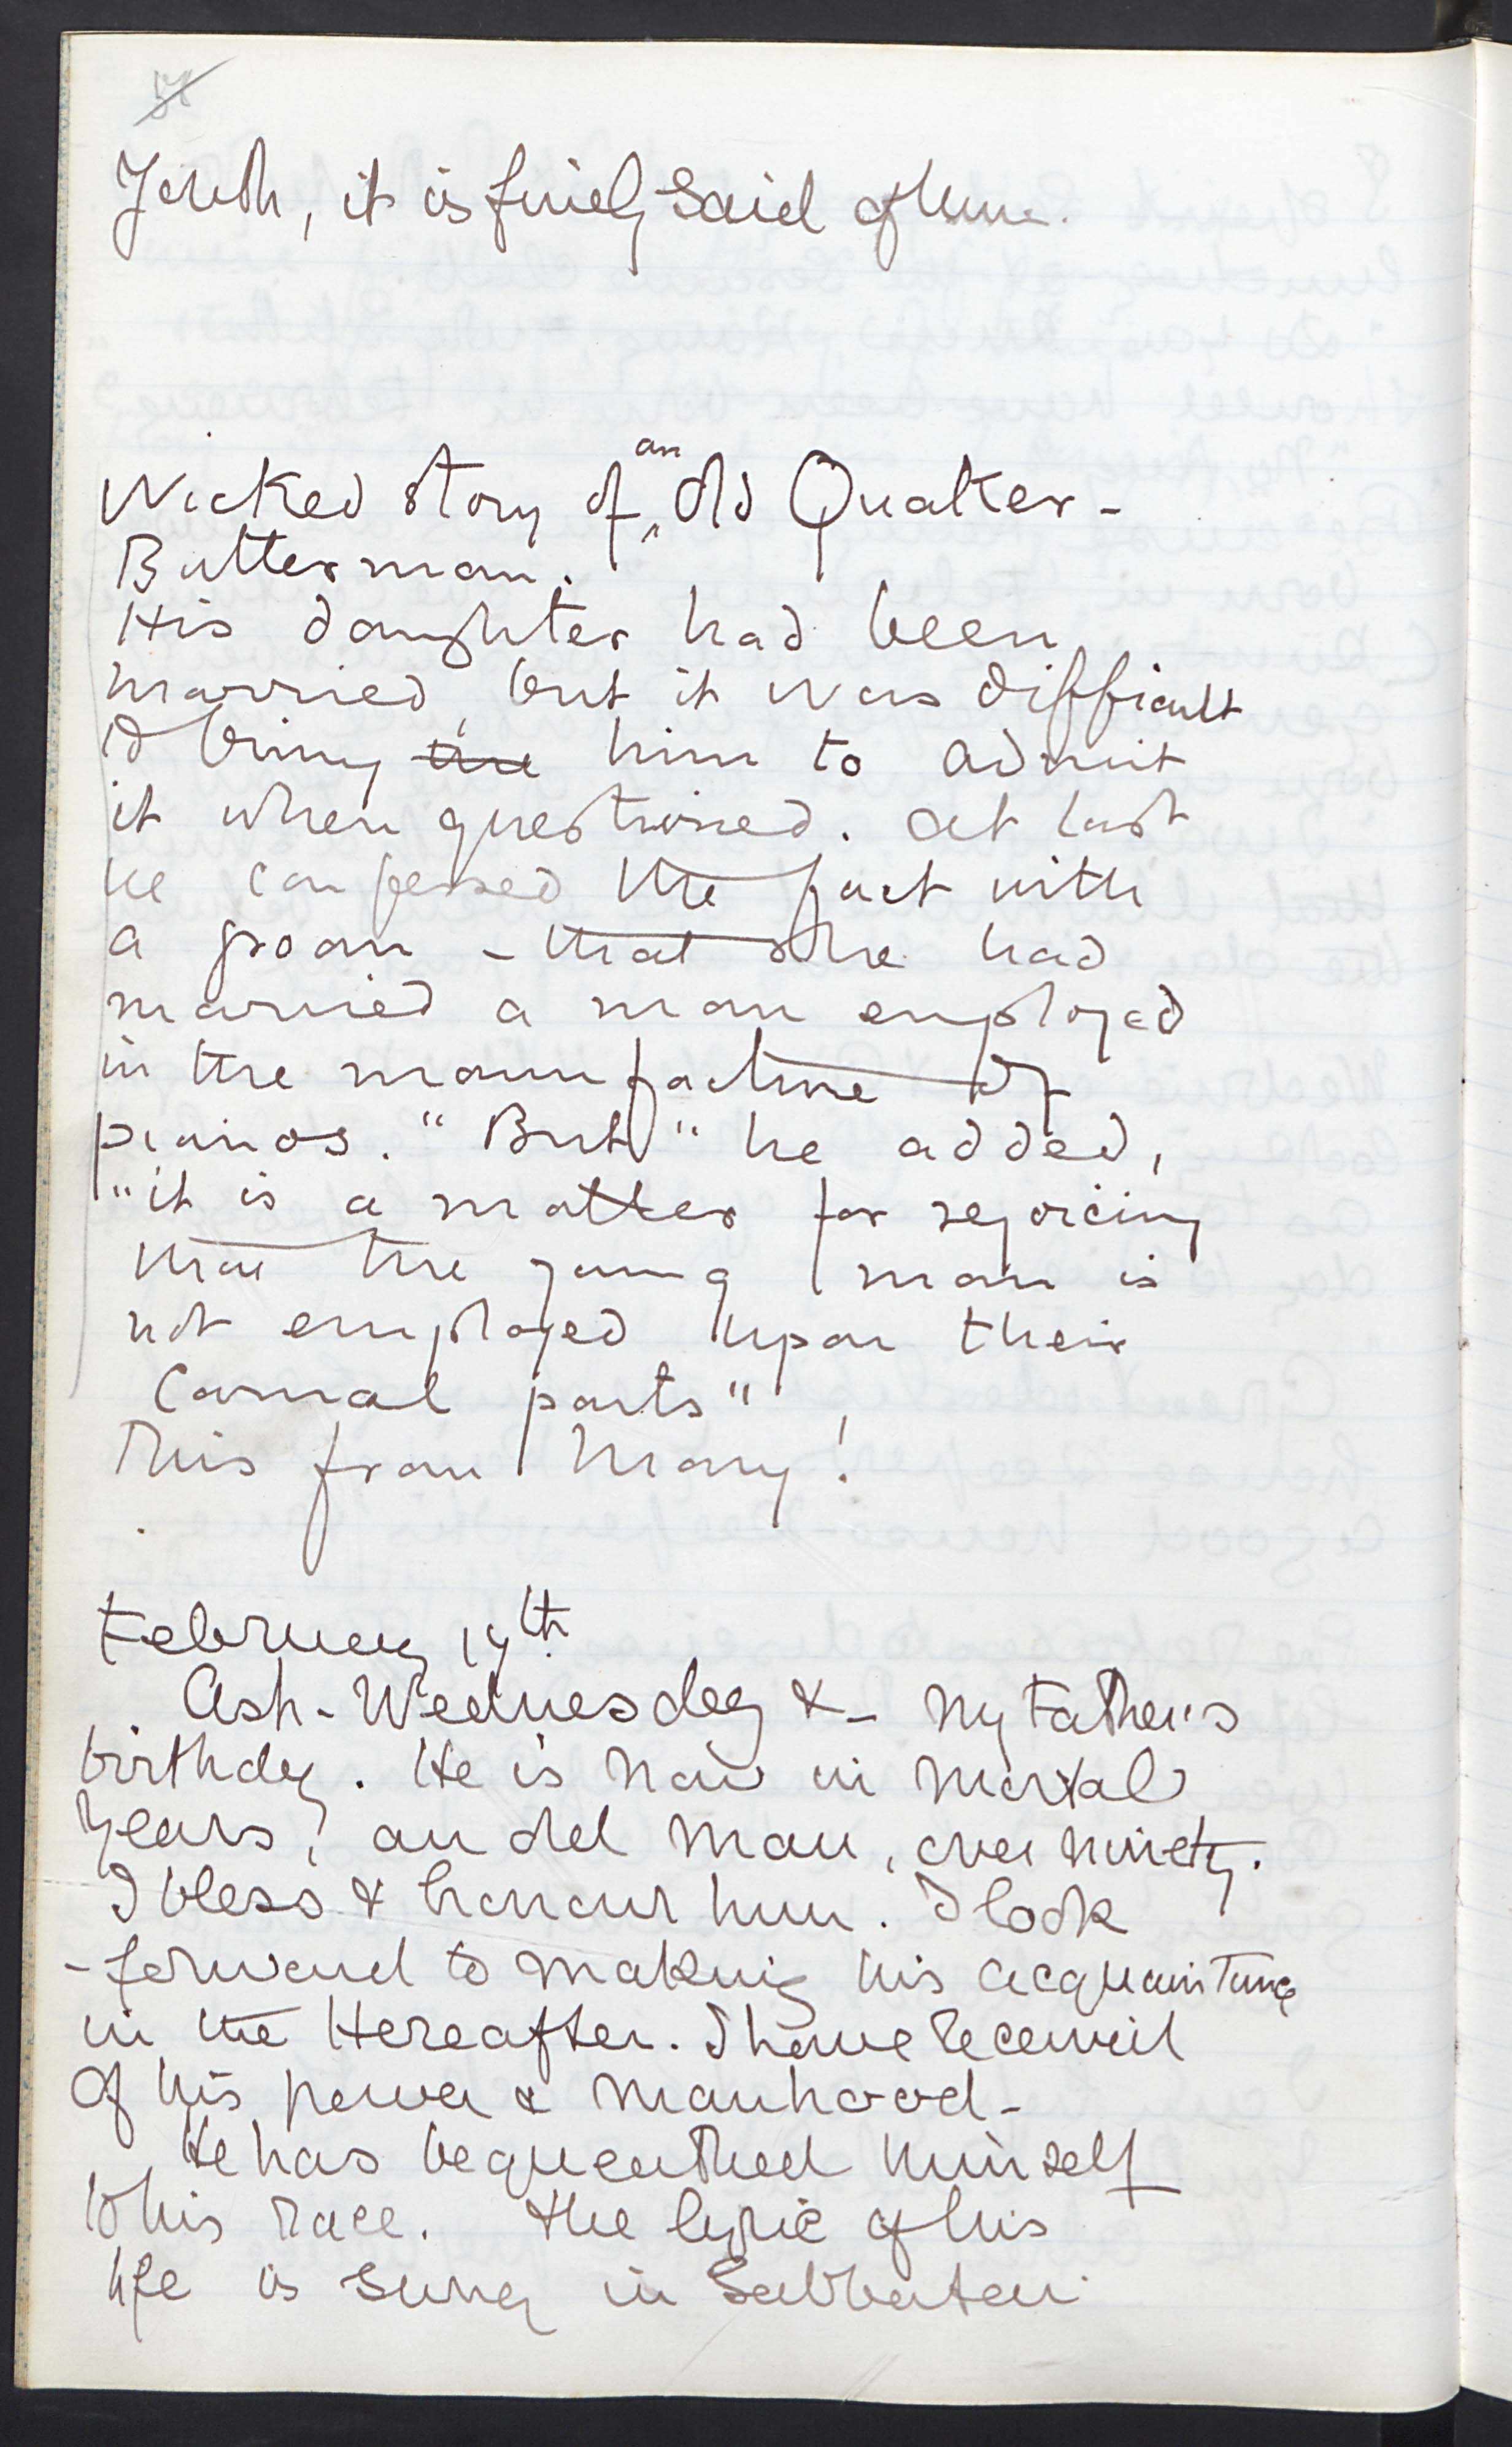 Youth, it is finely said of him.
Wicked story of an old Quaker-
Butterman.
His daughter had been
married, but it was difficult
to bring the him to admit
it when questioned. At last
he confessed the fact with
a groan - that she had
married a man employed
in the manufacture of
pianos. "But" he added,
"it is a matter for rejoicing
that the young man is
not employed upon their
carnal parts"
This from Mary!
February 17th.
Ash-Wednesday & - my Father's
birthday. He is now in mortal
years, an old man, over ninety.
I bless & honour him. I look
-forward to making his acquaintance
in the Hereafter. I have received
of his power & manhood -
He has bequeathed himself
to his race. The lyric of his
life is sung in Sabbatai